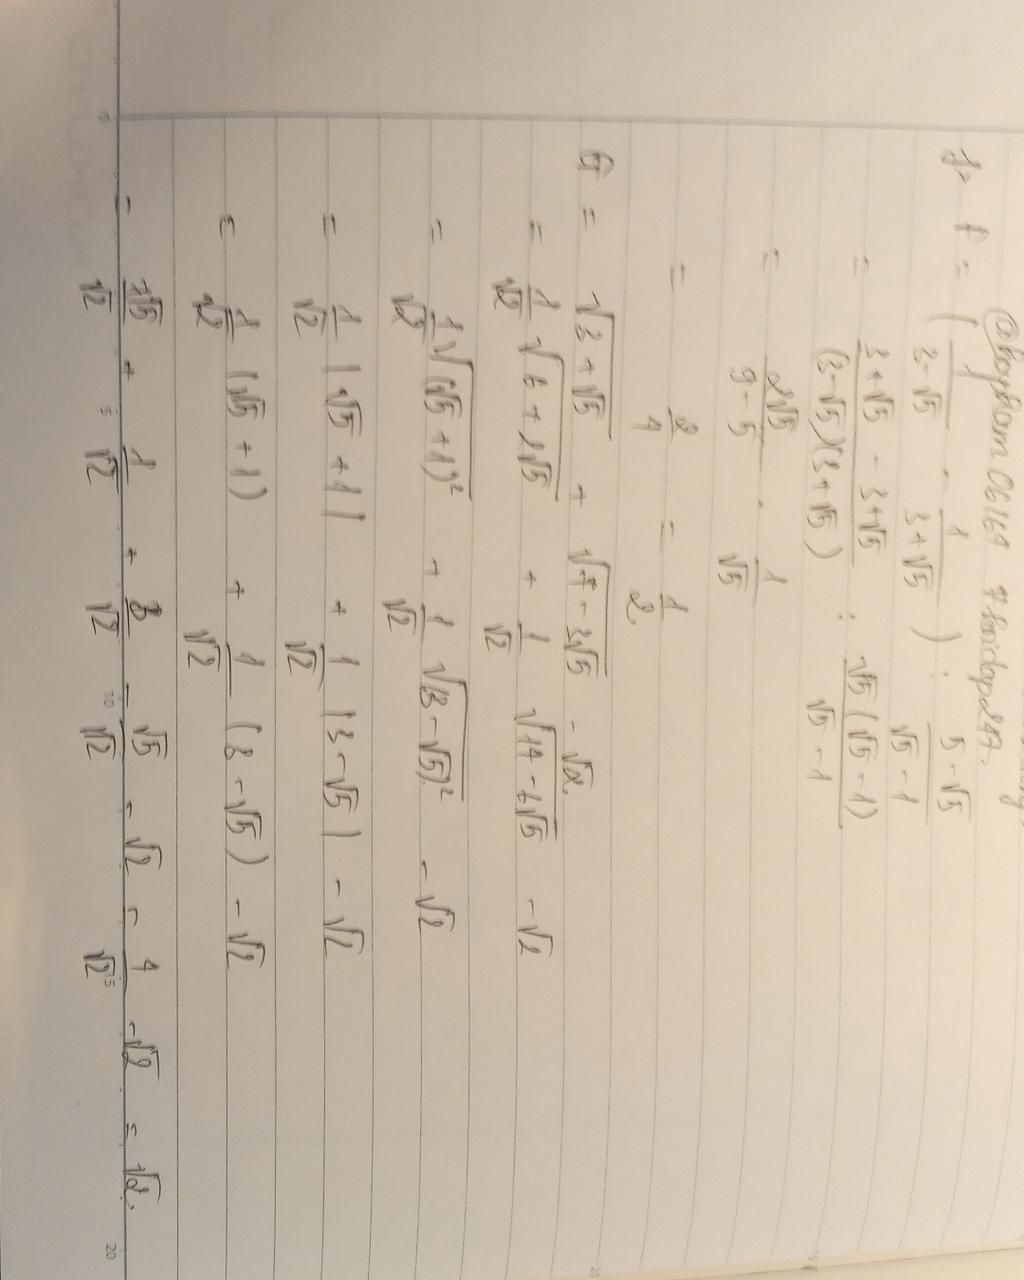 @hoydham.06164 7hoidap247,
f, F = ( 1/(3-√5) - 1/(3+√5) ) : (5-√5)/(√5-1)
= (3+√5 - 3+√5)/((3-√5)(3+√5)) : (√5(√5-1))/(√5-1)
= 2√5/(9-5) . 1/√5
= 2/4 = 1/2
G = √(3+√5) + √(7-3√5) - √2.
= 1/√2 √(6+2√5) + 1/√2 √(14-6√5) - √2
= 1/√2 √((√5+1)²) + 1/√2 √((3-√5)²) - √2
= 1/√2 |√5+1| + 1/√2 |3-√5| - √2
= 1/√2 (√5+1) + 1/√2 (3-√5) - √2
= √5/√2 + 1/√2 + 3/√2 - √5/√2 - √2 = 4/√2 - √2 = √2.